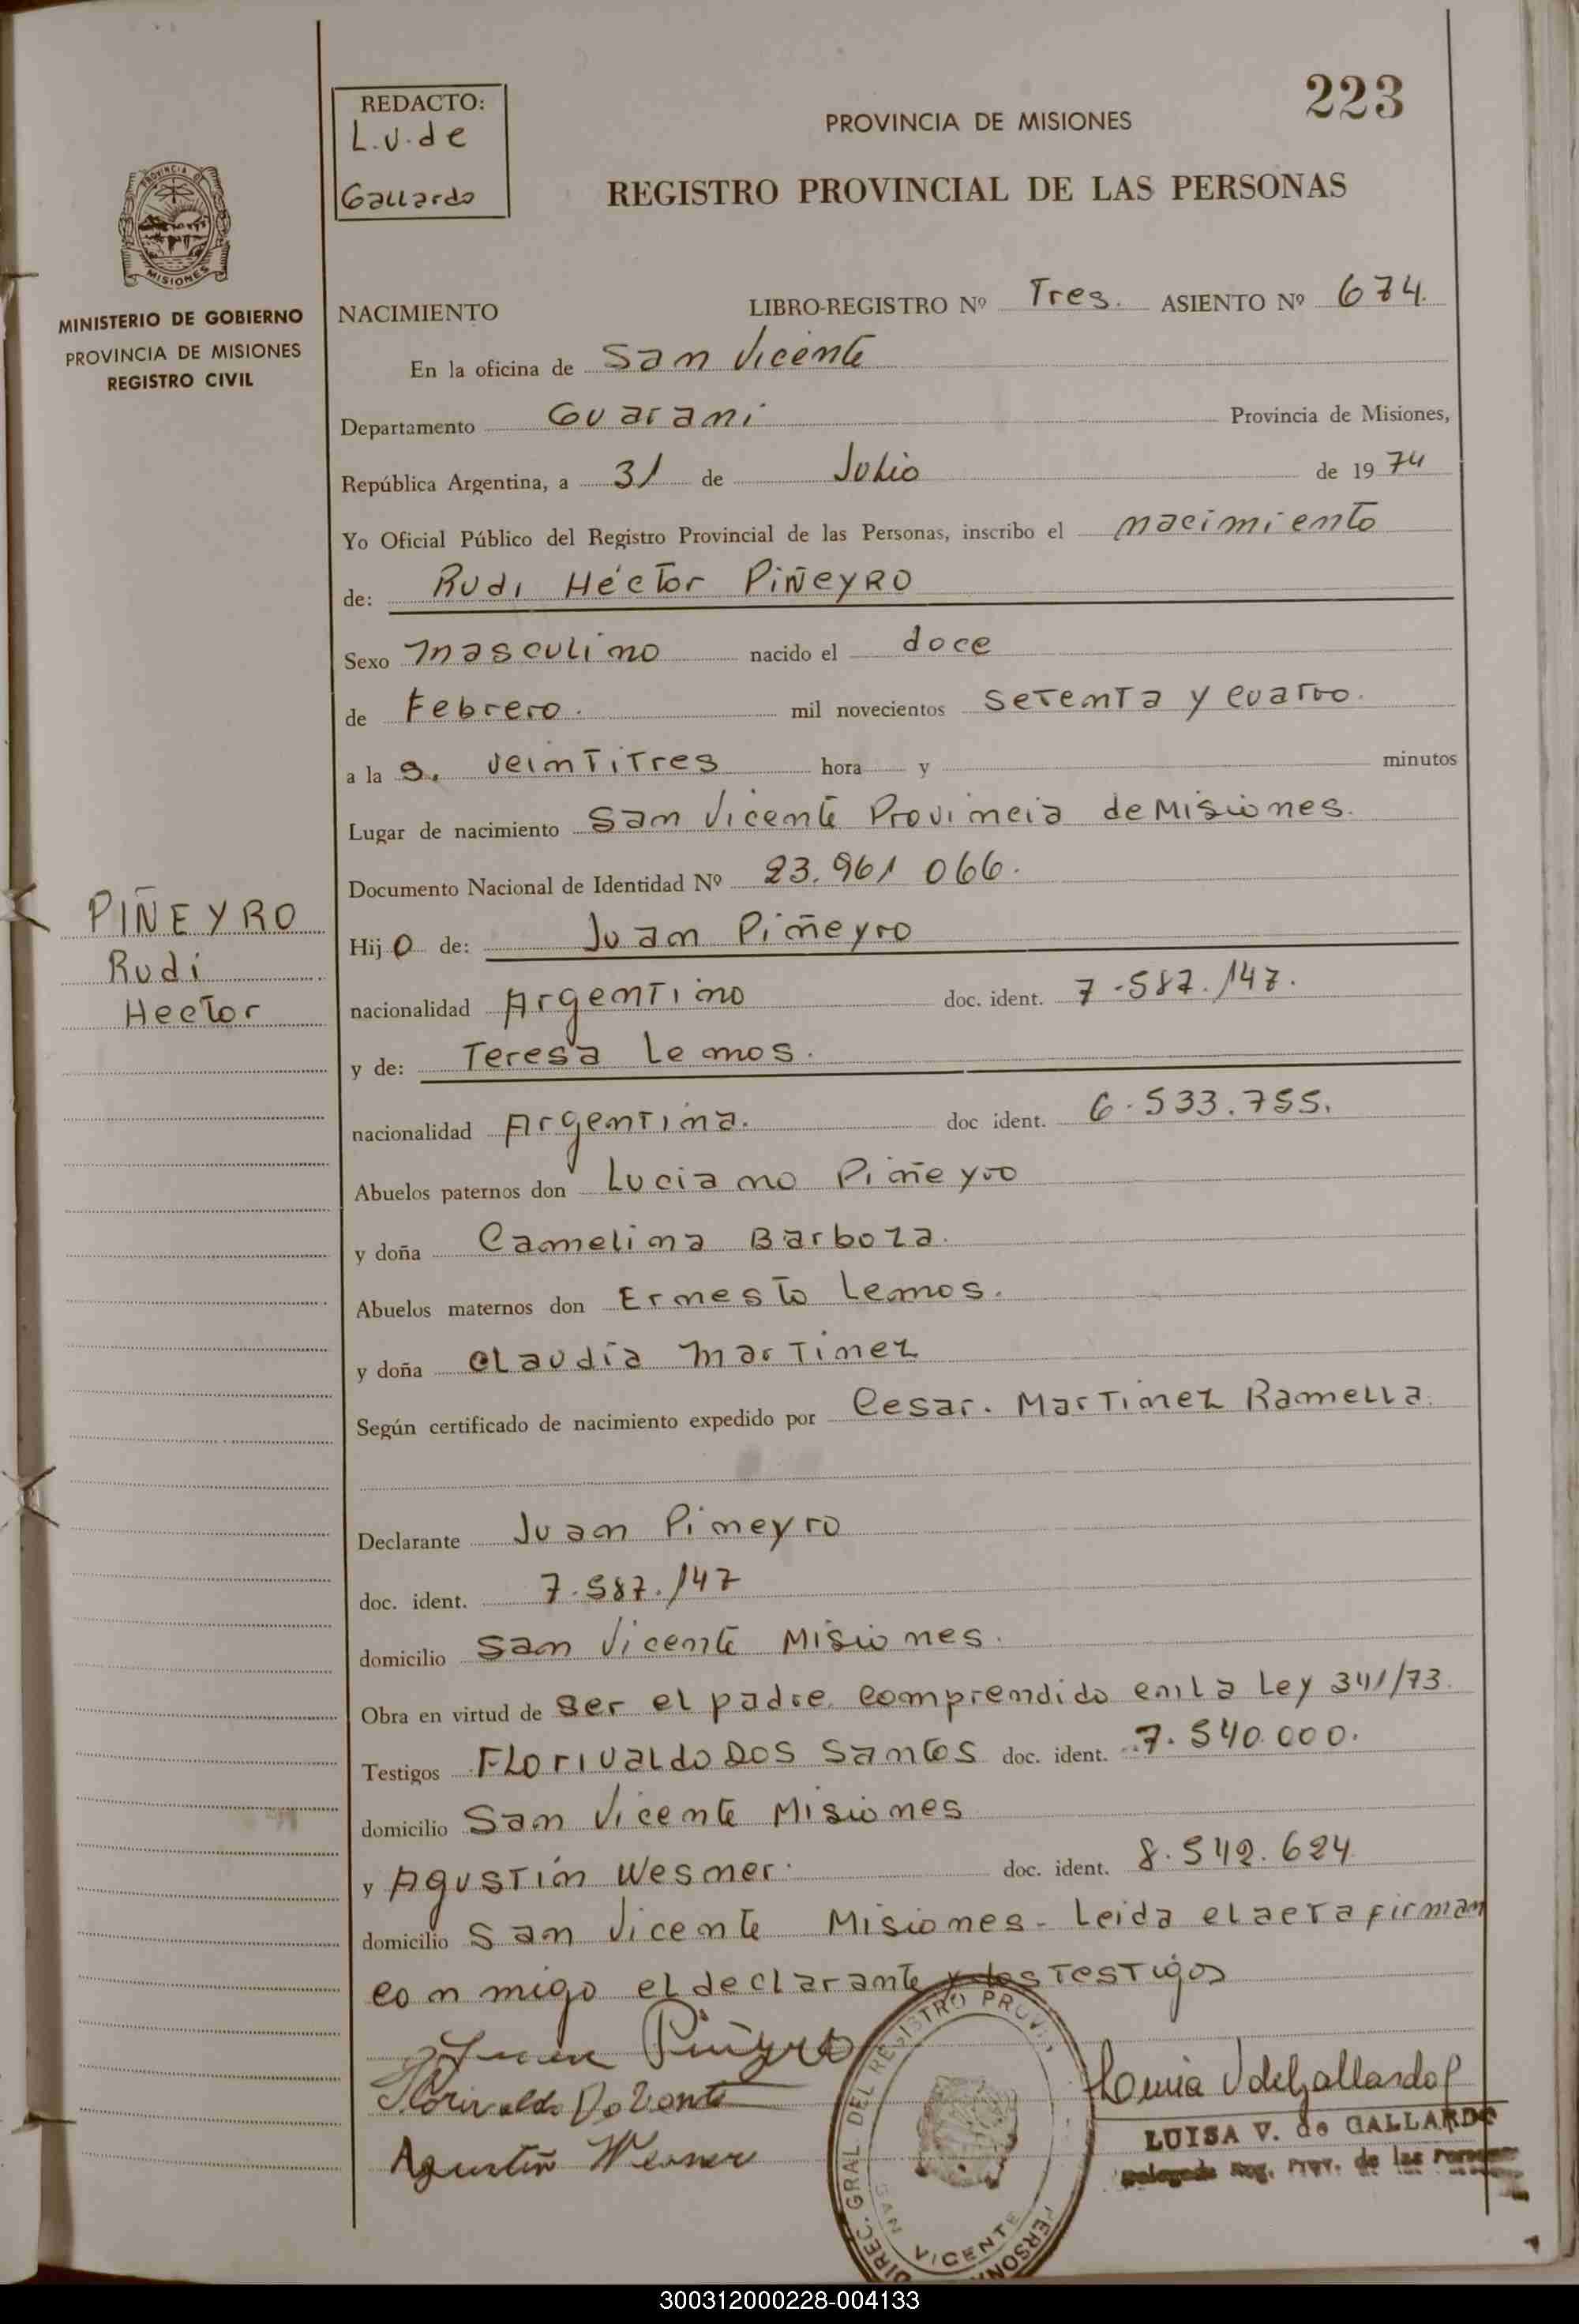 223
REDACTO:
L.V.de
Gallardo
PROVINCIA DE MISIONES
REGISTRO PROVINCIAL DE LAS PERSONAS
PROVINCIA DE
MISIONES
MINISTERIO DE GOBIERNO
PROVINCIA DE MISIONES
REGISTRO CIVIL
NACIMIENTO LIBRO-REGISTRO Nº Tres. ASIENTO Nº 674.
En la oficina de San Vicente
Departamento Guarani Provincia de Misiones,
República Argentina, a 31 de Julio de 1974
Yo Oficial Público del Registro Provincial de las Personas, inscribo el nacimiento
de: Rudi Héctor PIÑEYRO
Sexo masculino nacido el doce
de Febrero. mil novecientos setenta y cuatro.
a la s. veintitres hora y minutos
Lugar de nacimiento San Vicente Provincia de Misiones.
Documento Nacional de Identidad Nº 23.961 066.
PIÑEYRO
Rudi
Hector
Hijo de: Juan Piñeyro
nacionalidad Argentino doc. ident. 7.587.147.
y de: Teresa Lemos.
nacionalidad Argentina. doc ident. 6.533.755.
Abuelos paternos don Luciano Piñeyro
y doña Camelina Barboza.
Abuelos maternos don Ernesto Lemos.
y doña Claudia Martinez
Según certificado de nacimiento expedido por Cesar. Martinez Ramella.
Declarante Juan Pineyro
doc. ident. 7.587.147
domicilio San Vicente Misiones.
Obra en virtud de ser el padre comprendido en la Ley 341/73.
Testigos Florivaldo Dos Santos doc. ident. 7.540.000.
domicilio San Vicente Misiones
y Agustin Wesner. doc. ident. 8.542.624
domicilio San Vicente Misiones - Leida el acta firman
conmigo el declarante y los testigos
Juan Piñeyro
Agustin Wesner
DIREC. GRAL DEL REGISTRO PROV.
SAN VICENTE
LUISA V. de GALLARDO
Delegada Reg. Prov. de las Personas
300312000228-004133